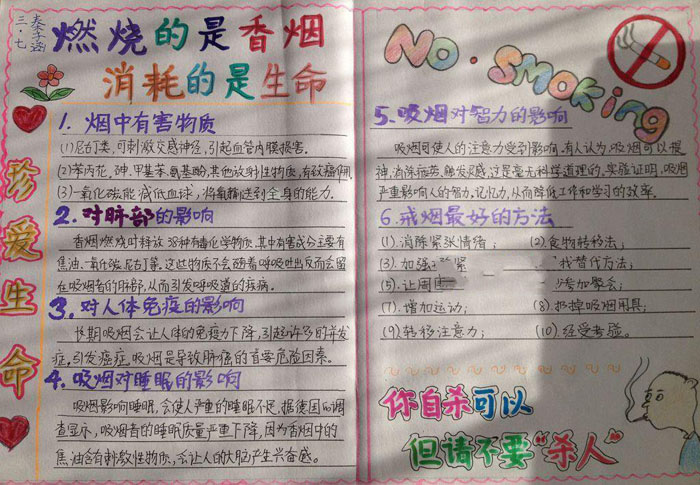 三·七
秦李涵
燃烧的是香烟
消耗的是生命
珍爱生命
1. 烟中有害物质
(1)尼古丁类,可刺激交感神经,引起血管内膜损害。
(2)苯丙花,砷,甲基苯,氨基酚,其他放射性物质,有致癌作用
(3)一氧化碳能减低血球,将氧输送到全身的能力。
2. 对肺部的影响
香烟燃烧时释放38种有毒化学物质,其中有害成分主要有
焦油、一氧化碳、尼古丁等。这些物质不会随着呼吸吐出反而会留
在吸烟者的肺部,从而引发呼吸道的疾病。
3. 对人体免疫的影响
长期吸烟会让人体的免疫力下降,引起许多的并发
症,引发癌症,吸烟是导致肺癌的首要危险因素。
4. 吸烟对睡眠的影响
吸烟影响睡眠,会使人严重的睡眠不足,据德国的调
查显示,吸烟者的睡眠质量严重下降,因为香烟中的
焦油含有刺激性物质,会让人的大脑产生兴奋感。
No·smoking
5. 吸烟对智力的影响
吸烟可使人的注意力受到影响,有人认为,吸烟可以提
神、消除疲劳、触发灵感,这是毫无科学道理的,实验证明,吸烟
严重影响人的智力、记忆力,从而降低工作和学习的效率。
6. 戒烟最好的方法
(1). 消除紧张情绪; (2) 食物转移法;
(3). 加强 找替代方法;
(5). 让周 参加聚会;
(7). 增加运动; (8). 扔掉吸烟用具;
(9) 转移注意力; (10). 经受考验。
你自杀可以
但请不要“杀人”